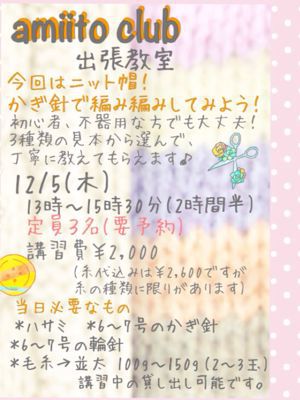 amiito club
出張教室
今回はニット帽!
かぎ針で編み編みしてみよう!
初心者、不器用な方でも大丈夫!
3種類の見本から選んで、
丁寧に教えてもらえます♪
12/5(木)
13時～15時30分(2時間半)
定員3名(要予約)
講習費¥2,000
(糸代込みは¥2,600ですが
糸の種類に限りがあります)
当日必要なもの
*ハサミ *6～7号のかぎ針
*6～7号の輪針
*毛糸→並太 100g～150g(2～3玉)
講習中の貸し出し可能です。